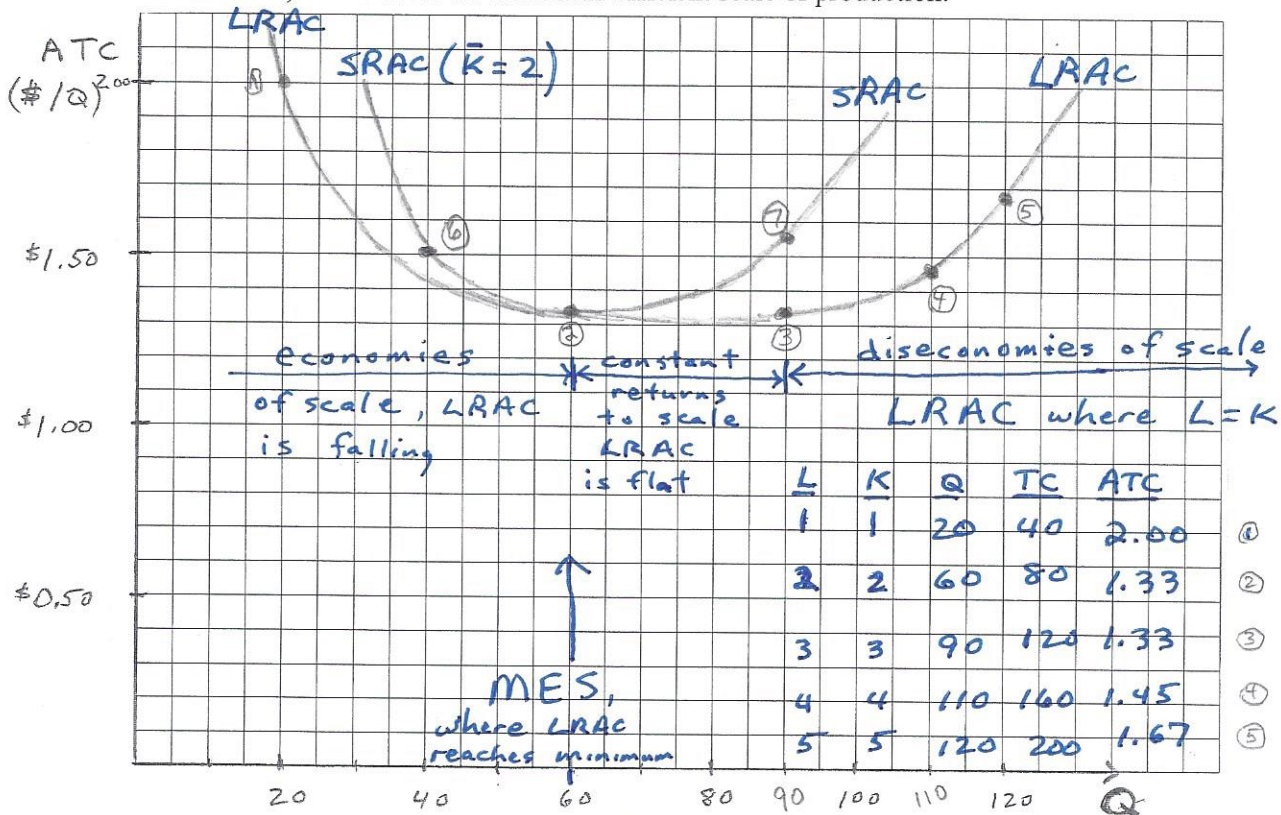 scale of production.
LRAC
ATC
($/Q)
2.00
SRAC (K̄=2)
SRAC
LRAC
①
⑥
⑦
⑤
④
②
③
$1.50
$1.00
$0.50
economies
of scale, LRAC
is falling
constant
returns
to scale
LRAC
is flat
diseconomies of scale
LRAC where L=K
L K Q TC ATC
1 1 20 40 2.00 ①
2 2 60 80 1.33 ②
3 3 90 120 1.33 ③
4 4 110 160 1.45 ④
5 5 120 200 1.67 ⑤
MES,
where LRAC
reaches minimum
20 40 60 80 90 100 110 120 Q